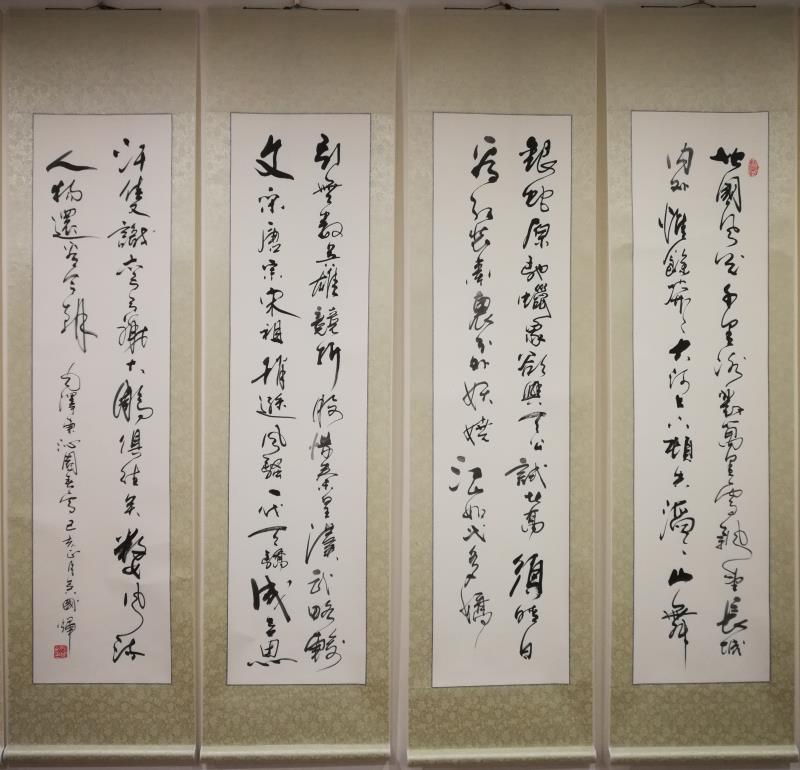 北國風光千里冰封萬里雪飄望長城
內外惟餘莽〻大河上下頓失滔〻山舞
銀蛇原馳蠟象欲與天公試比高須晴日
看紅裝素裹分外妖嬈江山如此多嬌
引無數英雄競折腰惜秦皇漢武略輸
文采唐宗宋祖稍遜風騷一代天驕成吉思
汗隻識彎弓射大鵰俱往矣數風流
人物還看今朝
毛澤東沁園春雪己亥正月吳國